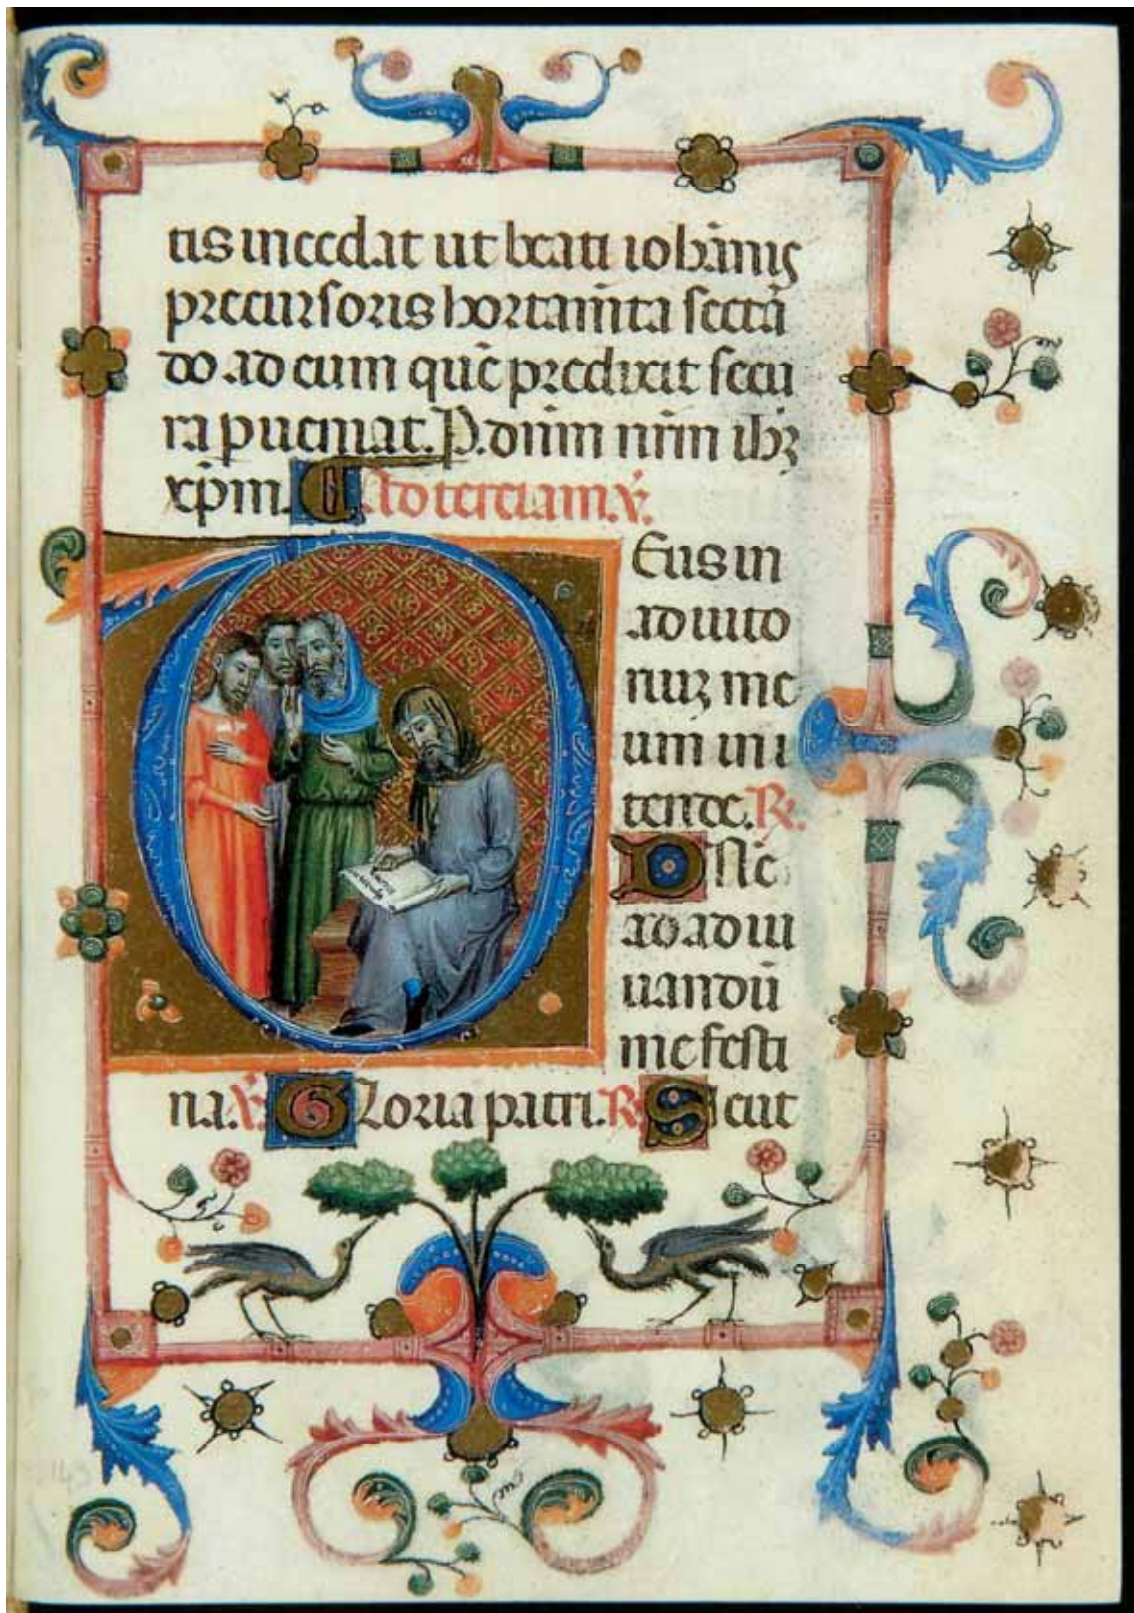 tis incedat ut beati iohānis
precursoris hortamīta sectā
do ad eum quē predixit secu
ra pueniat. P. dñm nr̄m ihȝ
xp̄m. Ad terciam. ℣.
Eus in
adiuto
riuȝ me
um in
tende. ℟.
Dn̄e
ad adiu
uandū
me festi
na. ℣. Gloria patri. ℟. Sicut